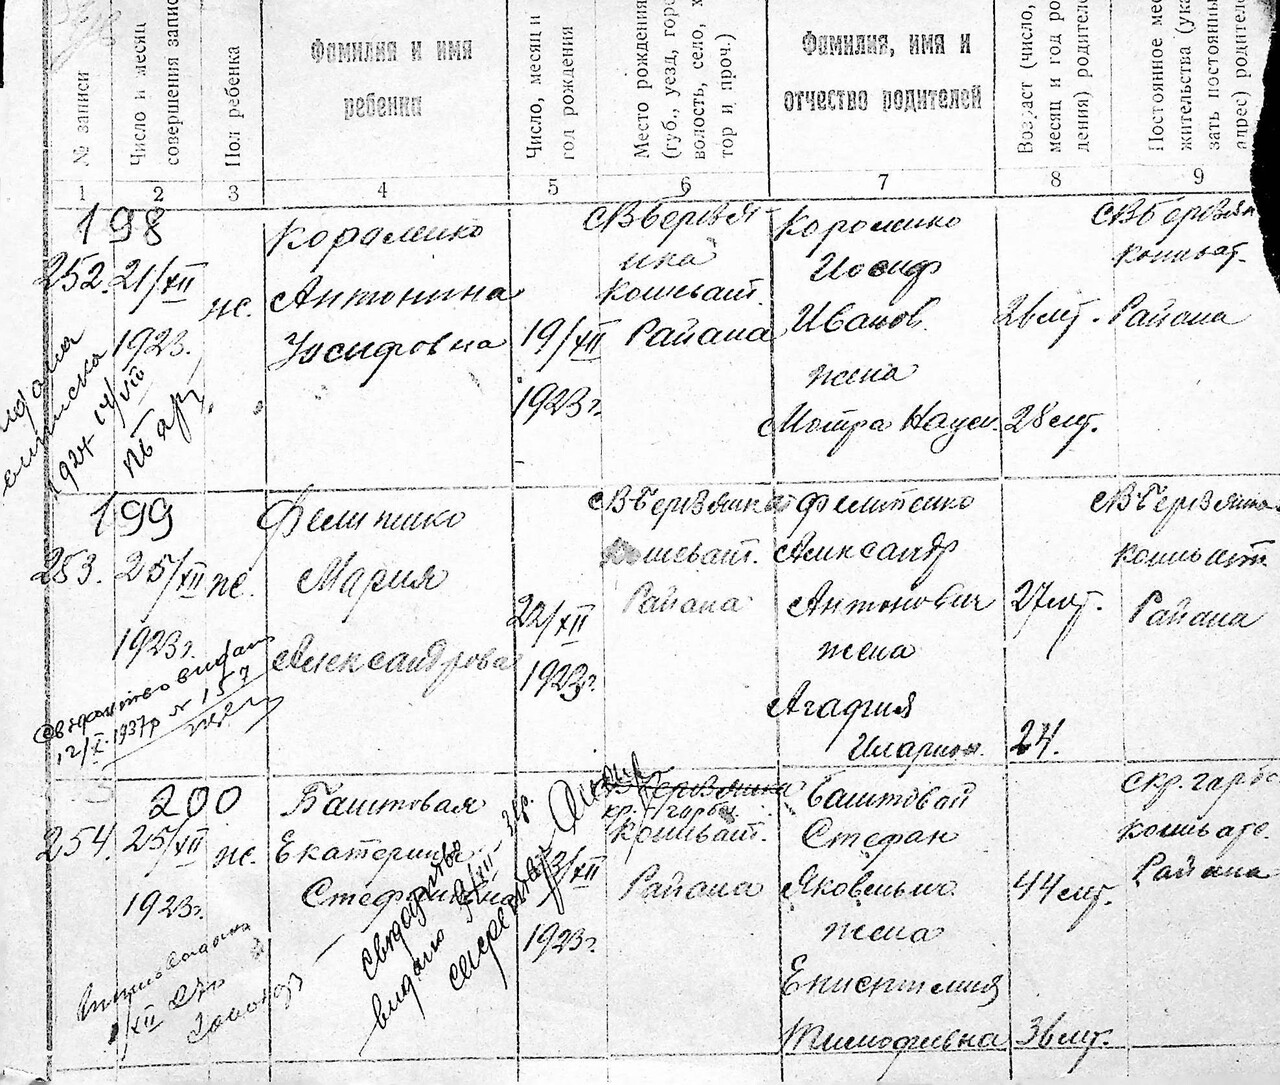 № записи
Число и месяц
совершения запис
Пол ребенка
Фамилия и имя
ребенка
Число, месяц и
год рождения
Место рождения
(губ., уезд, гор
волость, село, х
тор и проч.)
Фамилия, имя и
отчество родителей
Возраст (число,
месяц и год ро
дения) родител
Постоянное ме
жительства (ука
зать постоянны
адрес) родител
1 2 3 4 5 6 7 8 9
198
252. 21/XII
1923.
ж.
Короленко
Антонина
Иосифовна
19/XII
1923 г.
с В Бервя
нка
Кошеват.
Района
Короленко
Иосиф
Иванов.
жена
Мотря Наум.
26 лет.
28 лет.
с В Бервян
Кошеват.
Района
выписка
199
253. 25/XII
1923 г.
ж.
Фелипенко
Мария
Александрова
22/XII
1923 г.
с В-Бервянка
Кошеват.
Района
Филипенко
Александр
Антонович
жена
Агафия
Иларион.
27 лет.
24.
с В-Бервянка
Кошеват
Района
Свідоцтво видано
12/X-1937р № 157
200
254. 25/XII
1923 г.
ж.
Баштовая
Екатерина
Стефановна
1923 г.
В Бервянка
кр. гарбы
Кошеват.
Района
Баштовай
Стефан
Яковлевич
жена
Епистимия
Тимофеевна
44 лет.
36 лет.
с кр. гарб
Кошеват.
Района
Свідоцтво
видано
секретар